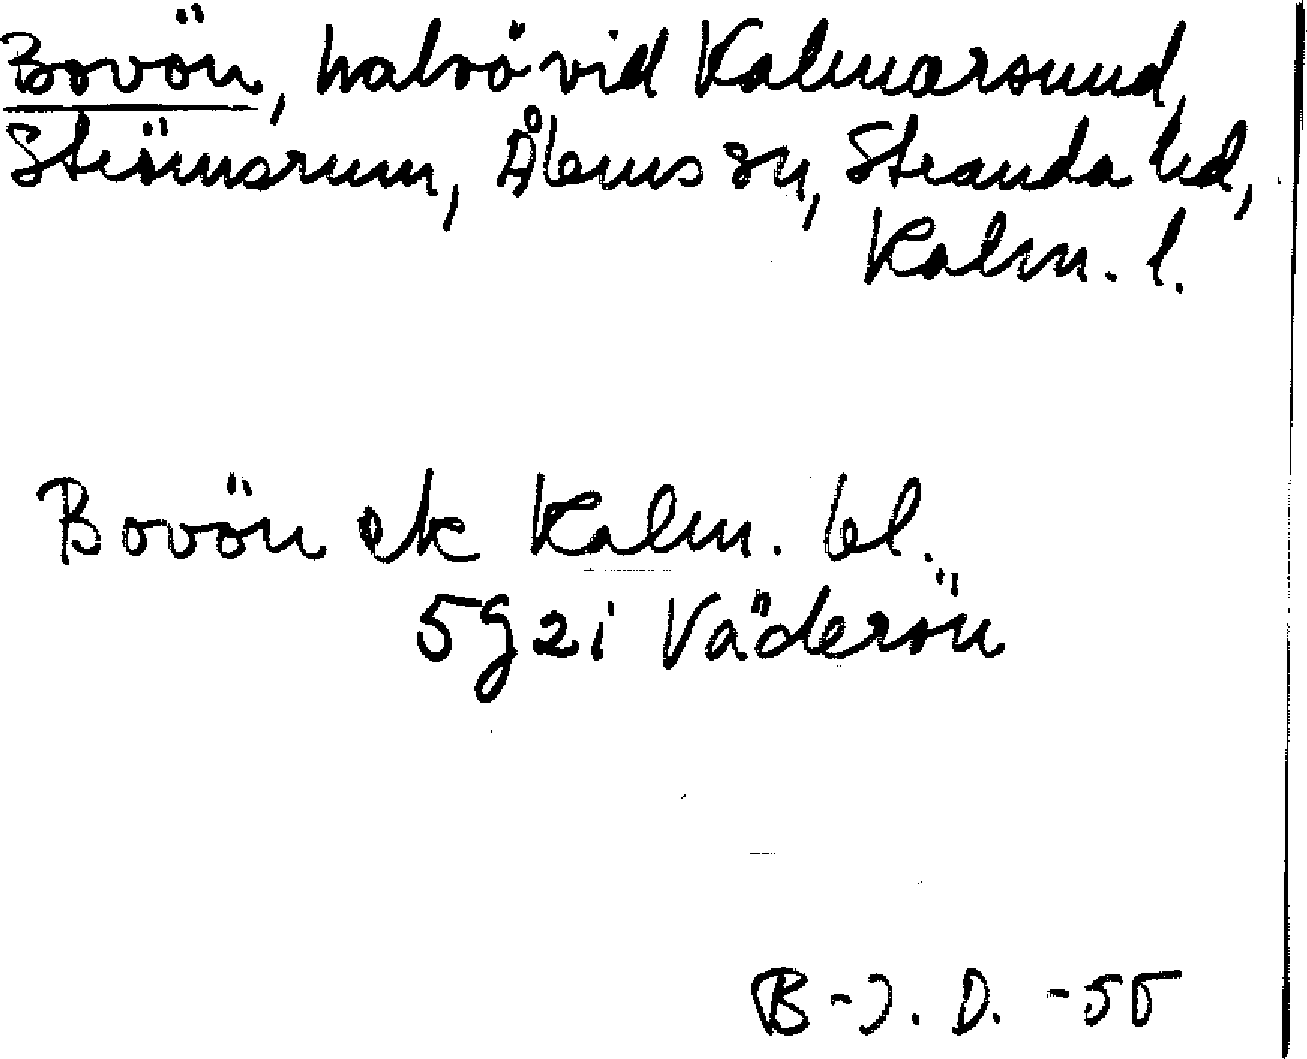 Bovön, halvö vid Kalmarsund,
Strömsrum, Ålems sn, Stranda hd,
Kalm. l.
Bovön ek Kalm. bl.
5g2i Väderön
B-J. D. -55